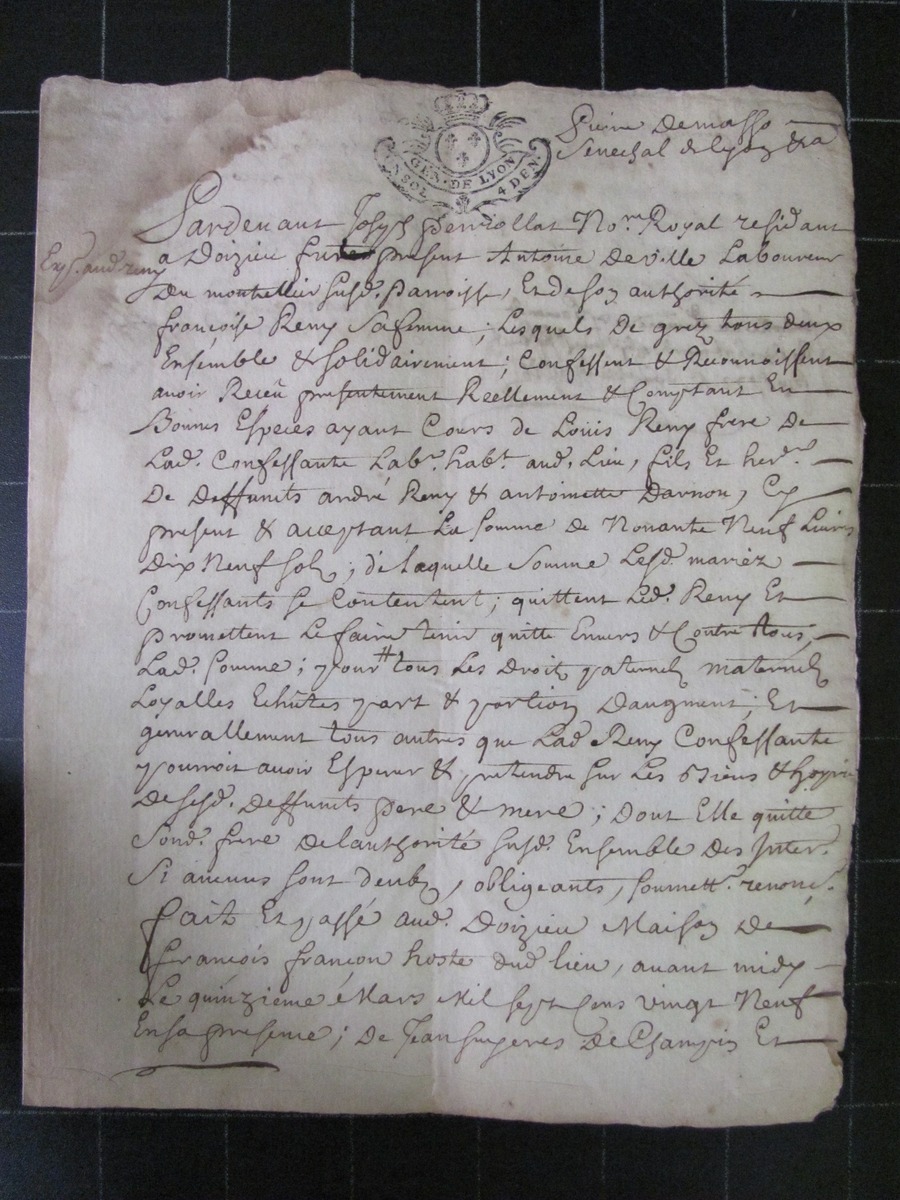 Pierre Demasso
GEN. DE LYON
UN SOL 4 DEN.
Senechal de Lyon &ra
Pardevant Joseph perrollat No.re Royal residant
a Doizieu present Antoine Deville Laboureur
Exp. aud. remy
Du montellier susd. parroisse, Et de son authorité
françoise Remy Safemme; Lesquels De grez tous deux
Ensemble & solidairement; Confessent & Reconnoissent
avoir Receü presentement Reellement & Comptant En
Bonnes Especes ayant Cours de Louis Remy frere De
Lad. Confessante Lab.r hab.t aud. Lieu, fils Et her.r
De deffunts andré Remy & antoinette Darnon, Cy
present & acceptant La somme de Nonante Neuf Livres
Dix Neuf solz; de laquelle somme Lesd. mariéz
Confessants se Contentent; quittent Led. Remy Et
promettent Le faire tenir quitte Envers & Contre tous,
Lad. somme; pour tous Les Droitz paternelz maternelz
Loyalles Echûtes part & portion Daugment; Et
generallement tous autres que Lad. Remy Confessante
pourroit avoir Esperer & pretendre sur Les Biens & hoyrie
Desesd. deffunts pere & mere; Dont Elle quitte
Sond. frere de lauthorité susd. Ensemble Des Inter.
Si aucuns sont deubz, obligeants, soumett. renonç.
fait Et passé aud. Doizieu Maison De
françois françon hoste dud. lieu, avant midy
Le quinzieme Mars Mil sept Cens vingt Neuf
En sa presence; De Jean De Et